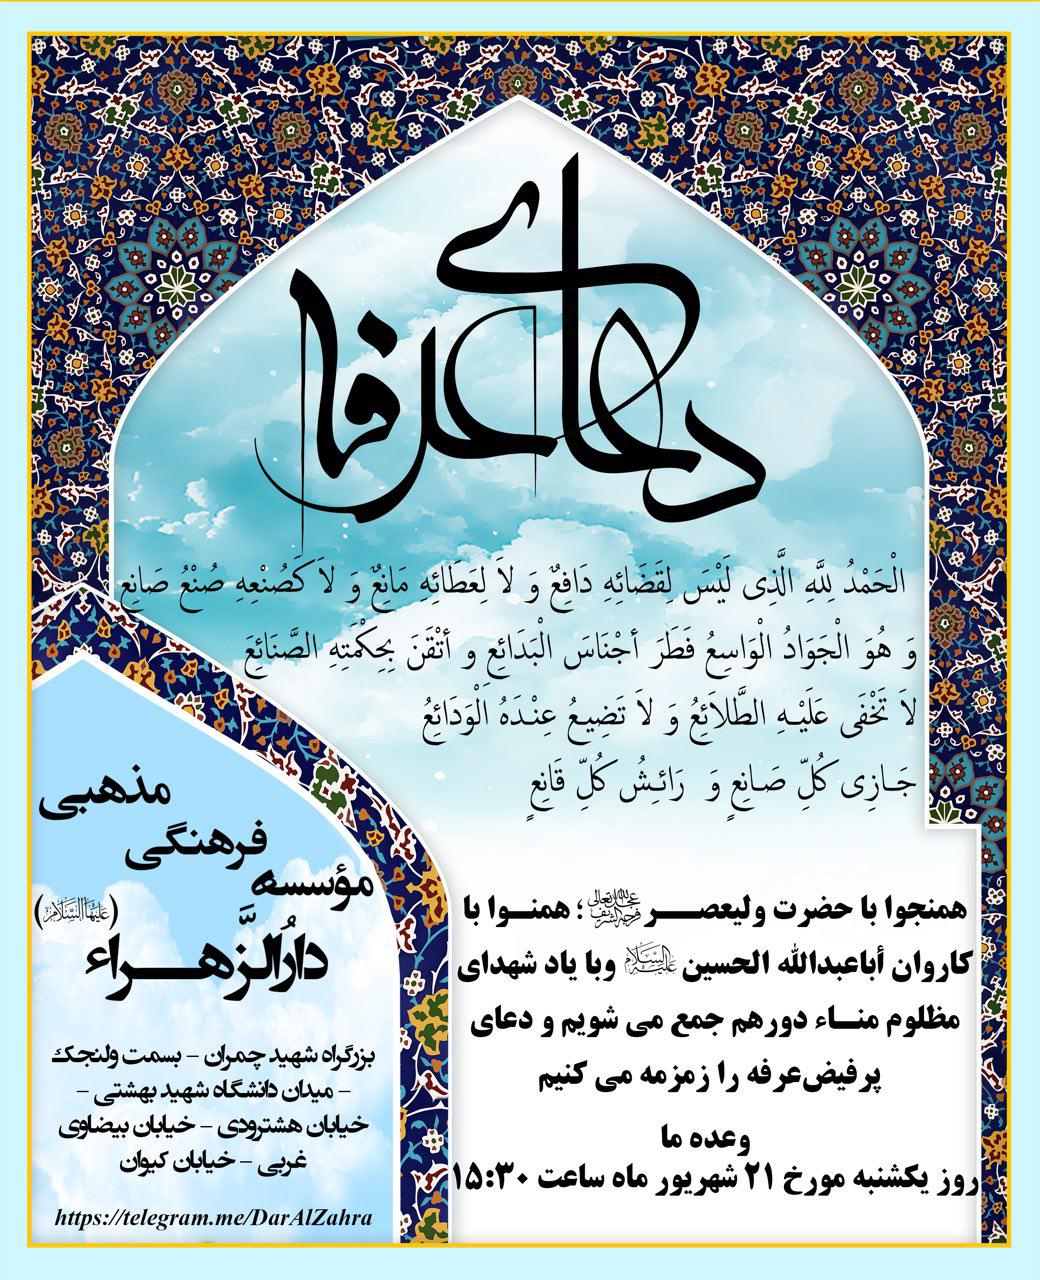 دعای عرفه
الْحَمْدُ لِلَّهِ الَّذِی لَیْسَ لِقَضَائِهِ دَافِعٌ وَ لاَ لِعَطَائِهِ مَانِعٌ وَ لاَ کَصُنْعِهِ صُنْعُ صَانِعٍ
وَ هُوَ الْجَوَادُ الْوَاسِعُ فَطَرَ أجْنَاسَ الْبَدَائِعِ و أتْقَنَ بِحِکْمَتِهِ الصَّنَائِعَ
لاَ تَخْفَی عَلَیْهِ الطَّلاَئِعُ وَ لاَ تَضِیعُ عِنْدَهُ الْوَدَائِعُ
جَازِی کُلِّ صَانِعٍ وَ رَائِشُ کُلِّ قَانِعٍ
همنجوا با حضرت ولیعصر عجل الله تعالی فرجه الشریف ؛ همنوا با
کاروان أباعبدالله الحسین علیه السلام وبا یاد شهدای
مظلوم مناء دورهم جمع می شویم و دعای
پرفیض‌عرفه را زمزمه می کنیم
وعده ما
روز یکشنبه مورخ ۲۱ شهریور ماه ساعت ۱۵:۳۰
مؤسسه
فرهنگی
مذهبی
دارُالزَّهراء
(علیها السلام)
بزرگراه شهید چمران - بسمت ولنجک
- میدان دانشگاه شهید بهشتی -
خیابان هشترودی - خیابان بیضاوی
غربی - خیابان کیوان
https://telegram.me/DarAlZahra